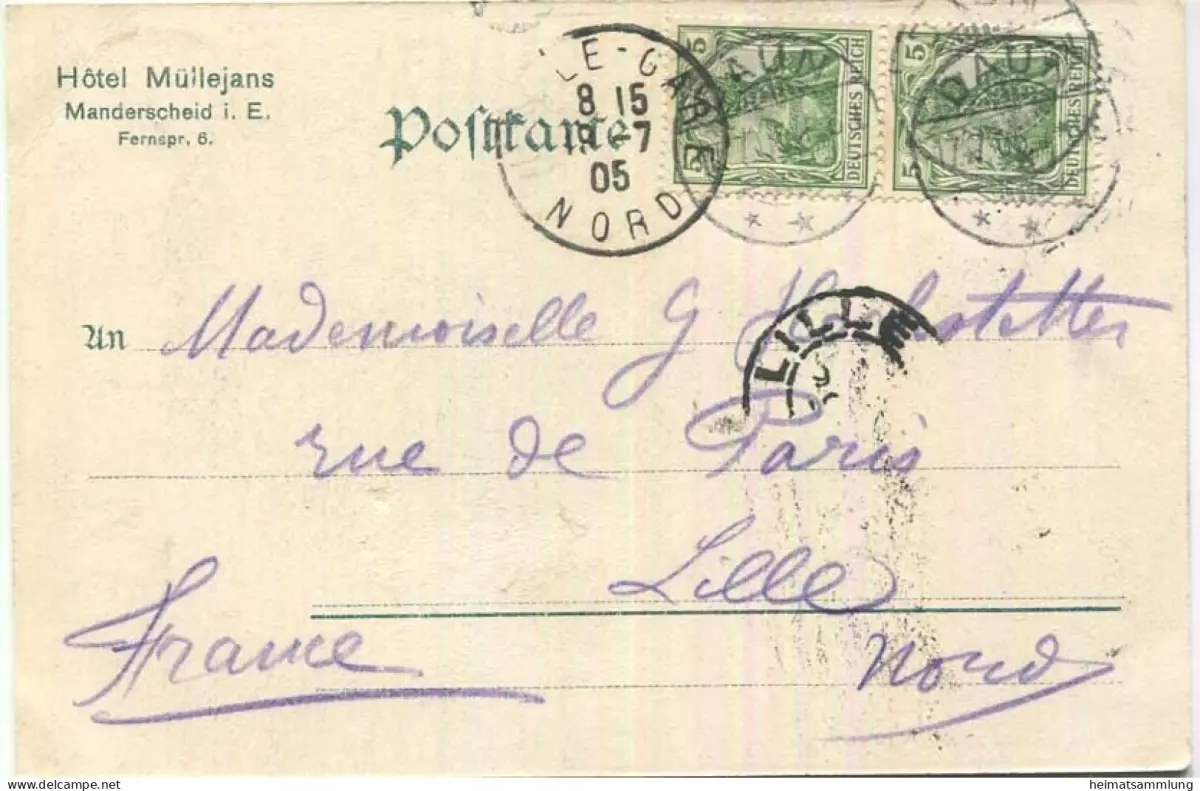 Hôtel Müllejans
Manderscheid i. E.
Fernspr. 6.
Postkarte
LE-GARE
8 15
-7
05
NORD
DAUN
5 DEUTSCHES REICH
DAUN
5 DEUTSCHES REICH
An Mademoiselle G
LILLE
rue de Paris
Lille
France
Nord
heimatsammlung